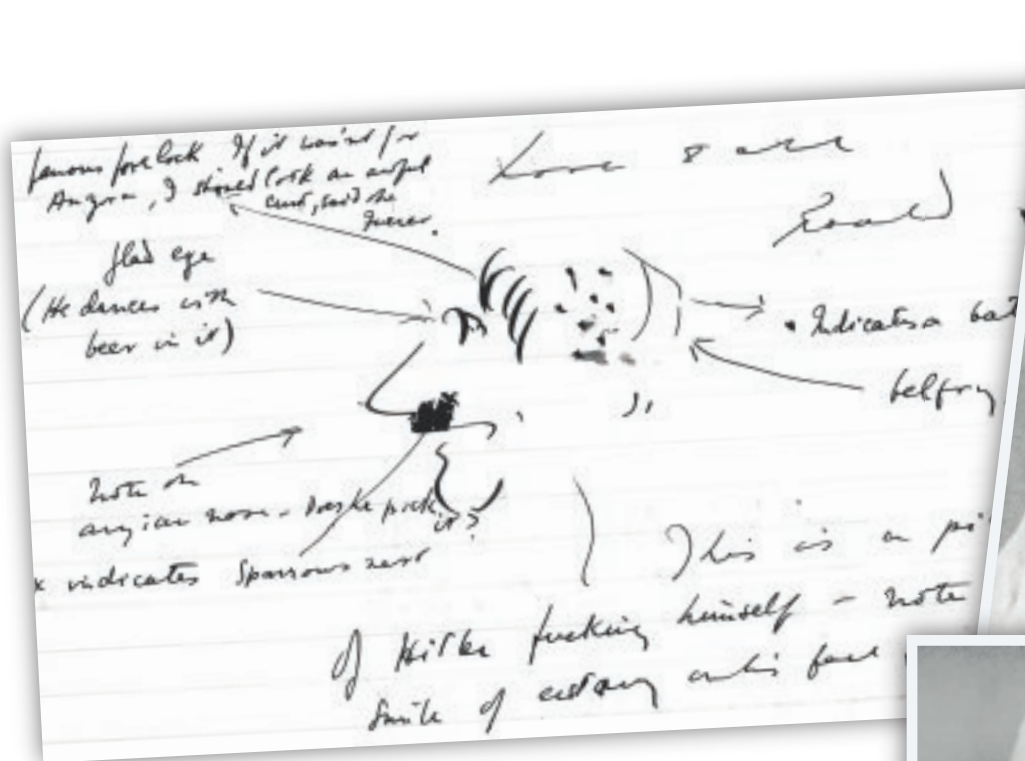 famous forelock If it wasn't for
Angora, I should look an awful
cunt, said the
Fuerer.
Love & all
Roald
Glad eye
(He dances with
beer in it)
• Indicates a bat
belfry
Note on
nose - Does he pick
it?
x indicates Sparrows nest
This is a
of Hitler fucking himself - note
Smile of on his face